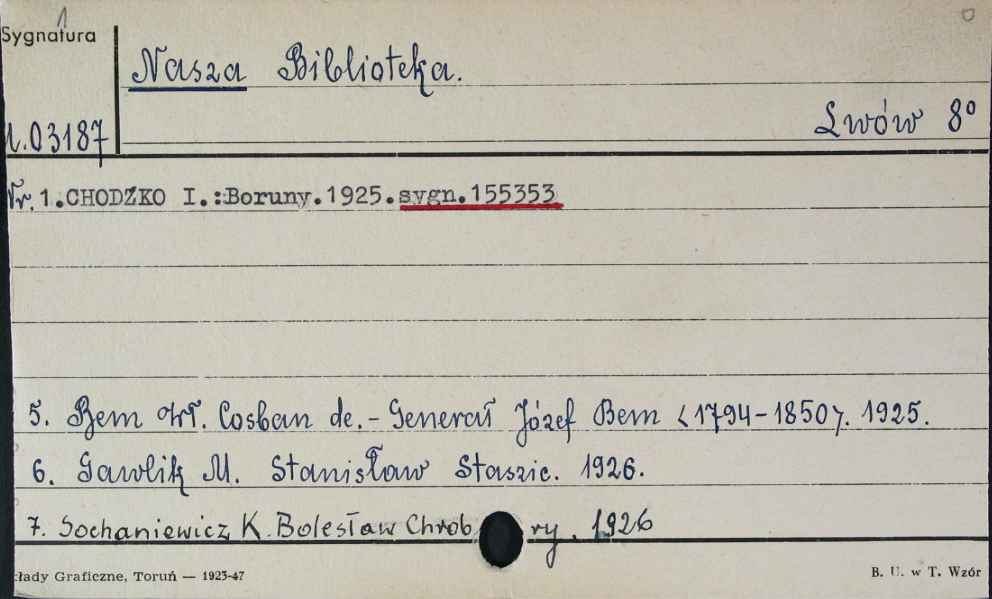 1
Sygnatura
Nasza Biblioteka.
03187
Lwów 8°
Nr. 1.CHODŹKO I.:Boruny.1925.sygn.155353
5. Bem Wł. Cosban de. - Generał Józef Bem <1794-1850>. 1925.
6. Gawlik M. Stanisław Staszic. 1926.
7. Sochaniewicz K. Bolesław Chrob ry. 1926
łady Graficzne, Toruń — 1925-47
B. U. w T. Wzór